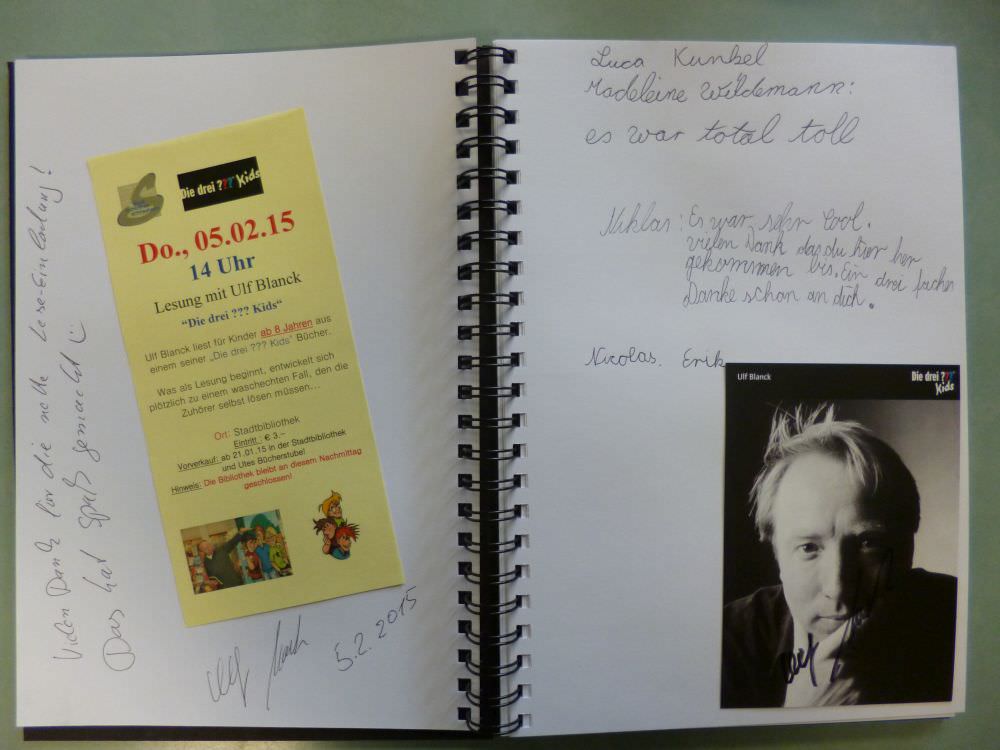 Vielen Dank für die nette Lese-Einladung!
Das hat Spaß gemacht
Die drei ??? Kids
Do., 05.02.15
14 Uhr
Lesung mit Ulf Blanck
“Die drei ??? Kids“
Ulf Blanck liest für Kinder ab 8 Jahren aus
einem seiner „Die drei ??? Kids“ Bücher.
Was als Lesung beginnt, entwickelt sich
plötzlich zu einem waschechten Fall, den die
Zuhörer selbst lösen müssen...
Ort: Stadtbibliothek
Eintritt : € 3.–
Vorverkauf: ab 21.01.15 in der Stadtbibliothek
und Utes Bücherstube!
Hinweis: Die Bibliothek bleibt an diesem Nachmittag
geschlossen!
Ulf Blanck
5.2.2015
Luca Kunkel
Madeleine Wildemann:
es war total toll
Niklas: Es war sehr Cool.
vielen Dank das du hier her
gekommen bis. Ein drei faches
Danke schön an dich.
Nicolas. Erik
Ulf Blanck
Die drei ???
Kids
Ulf Blanck